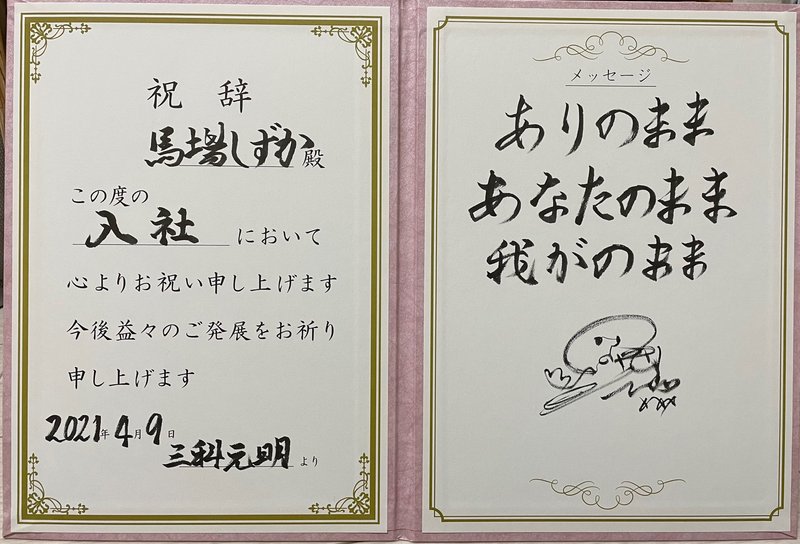 祝 辞
馬場しずか殿
この度の
入社において
心よりお祝い申し上げます
今後益々のご発展をお祈り
申し上げます
2021年4月9日
三科元明より
メッセージ
ありのまま
あなたのまま
我がのまま